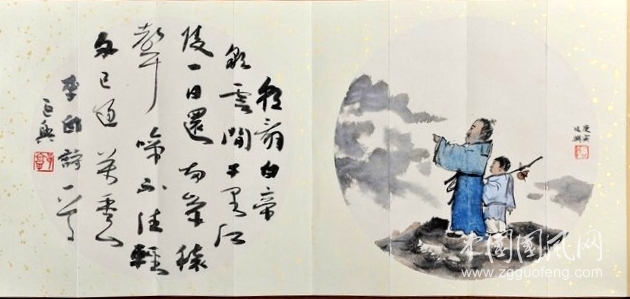 朝辞白帝
彩雲間千里江
陵一日還两岸猿
聲啼不住輕
舟已過萬重山
李白詩一首
中国国风网
www.zgguofeng.com